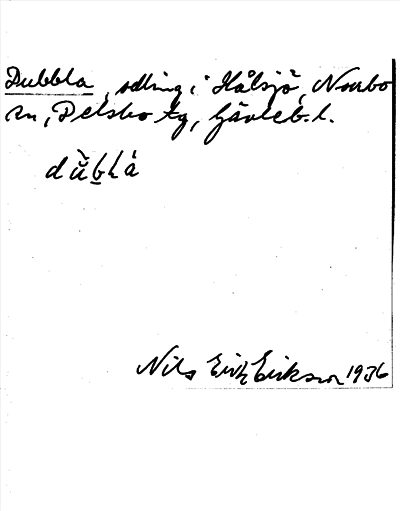 Dubbla, odling i Hålsjö, Norrbo
sn, Delsbo tg, Gävleb. l.
dùbḷá
Nils Erik Eriksson 1936